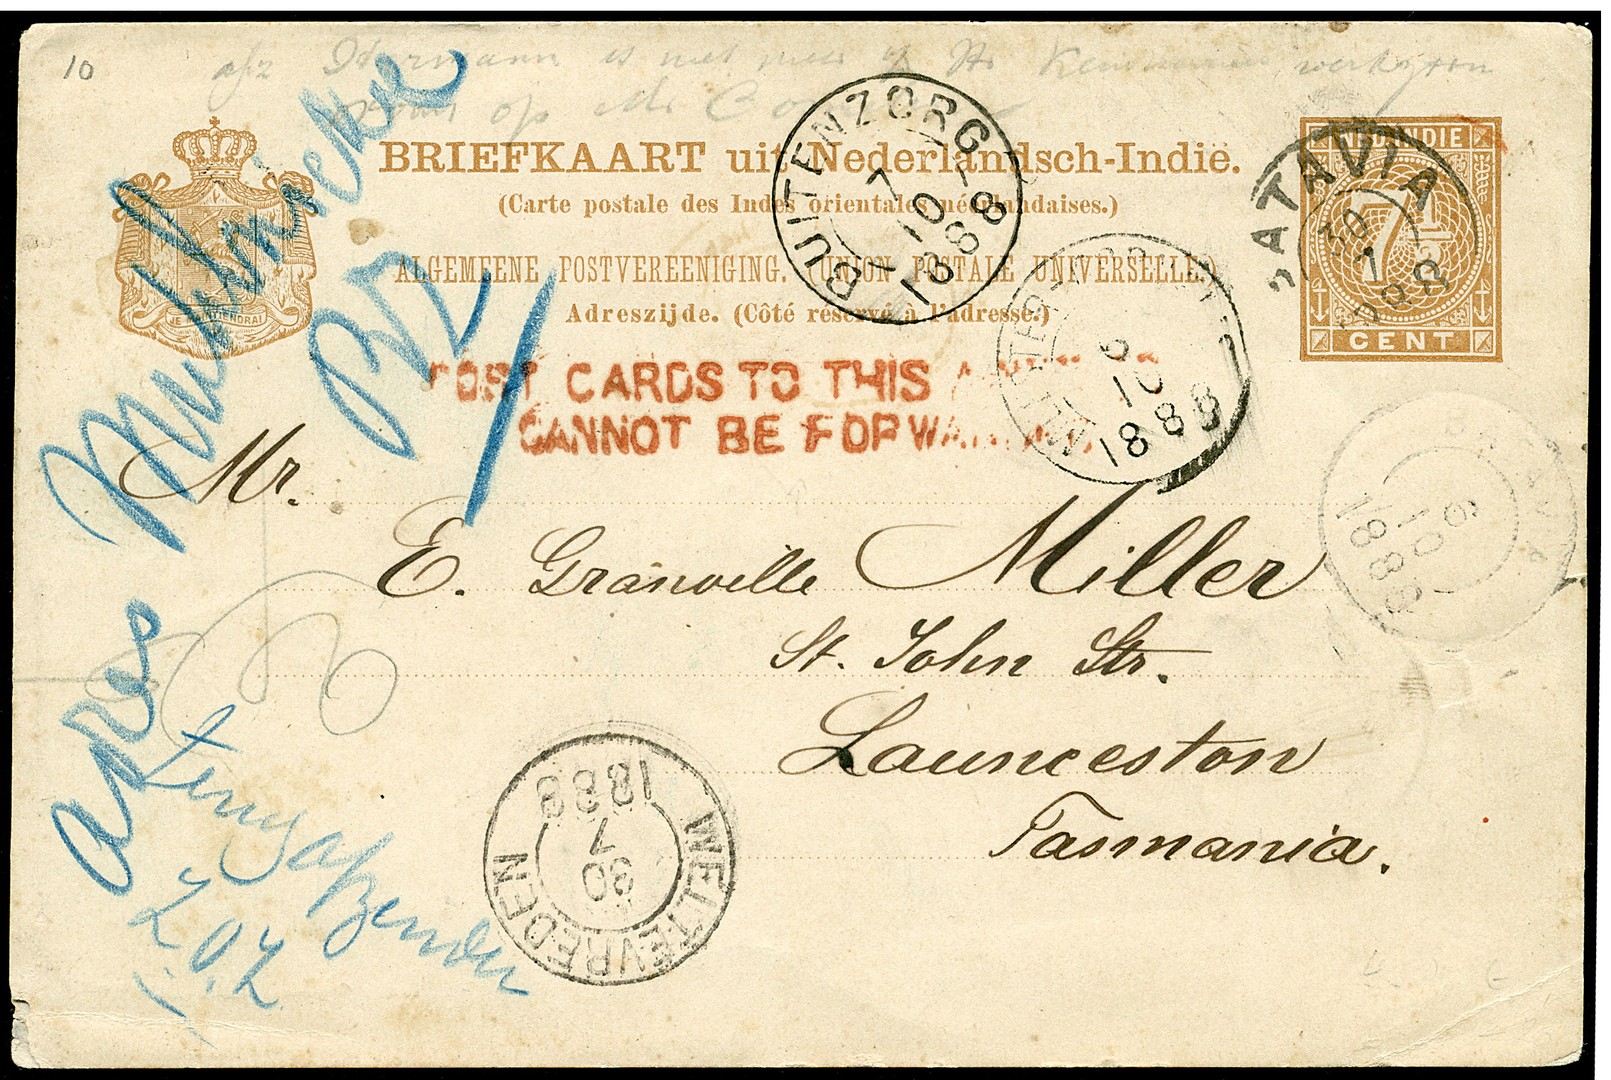 10
afz is niet meer
op Mr
BRIEFKAART uit Nederlandsch-Indië.
(Carte postale des Indes orientales néerlandaises.)
ALGEMEENE POSTVEREENIGING. (UNION POSTALE UNIVERSELLE.)
Adreszijde. (Côté réservé à l'adresse.)
JE MAINTIENDRAI
NED. INDIE
7½
CENT
BATAVIA
30
7
1888
BUITENZORG
7
10
1888
WELTEVREDEN
6
10
1888
POST CARDS TO THIS
CANNOT BE FORWARDED.
Mr.
E. Granville Miller
St. John Str.
Launceston
Tasmania.
BATAVIA
6
10
1888
WELTEVREDEN
30
7
1888
BZ
adres
terug afzender
Z.O.Z.